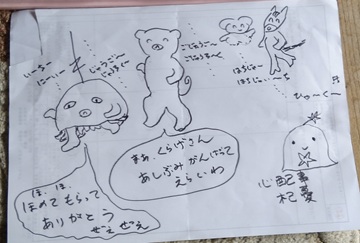 いーち
にーいー
じゅうごー
じゅうろくー
ごじゅうごー
ごじゅうろーく
はちじゅー
はちじゅーいーち
ひゃーくー
まぁ、くらげさん
あしぶみ がんばって
えらいわ
ほ、ほ、
ほめて もらって
ありがとう
ぜえ ぜえ
心配事
杞憂